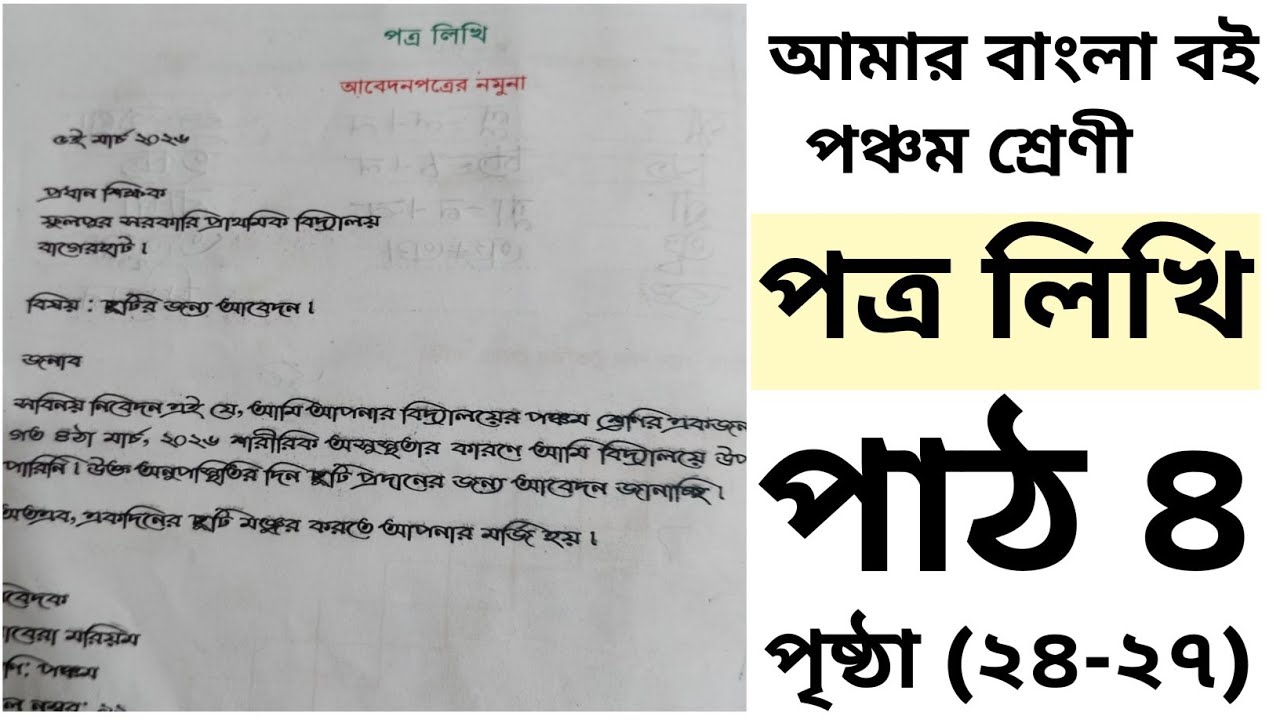 পত্র লিখি
আবেদনপত্রের নমুনা
৫ই মার্চ ২০২৬
প্রধান শিক্ষক
ফুলপুর সরকারি প্রাথমিক বিদ্যালয়
বাগেরহাট।
বিষয় : ছুটির জন্য আবেদন।
জনাব
সবিনয় নিবেদন এই যে, আমি আপনার বিদ্যালয়ের পঞ্চম শ্রেণির একজন
গত ৪ঠা মার্চ, ২০২৬ শারীরিক অসুস্থতার কারণে আমি বিদ্যালয়ে উপ
পারিনি। উক্ত অনুপস্থিতির দিন ছুটি প্রদানের জন্য আবেদন জানাচ্ছি।
অতএব, একদিনের ছুটি মঞ্জুর করতে আপনার মর্জি হয়।
বেদক
বেরা মরিয়ম
ণি: পঞ্চম
ল নম্বর:
আমার বাংলা বই
পঞ্চম শ্রেণী
পত্র লিখি
পাঠ ৪
পৃষ্ঠা (২৪-২৭)